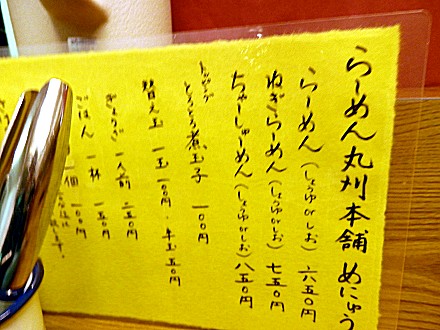 らーめん丸刈本舗 めにゅう
らーめん(しょうゆorしお) 六五〇円
ねぎらーめん(しょうゆorしお) 七五〇円
ちゃーしゅーめん(しょうゆorしお) 八五〇円
トッピング
とろとろ煮玉子 一〇〇円
替え玉 一玉 一〇〇円・半玉 五〇円
ぎょうざ 一人前 二五〇円
ごはん 一杯 一五〇円
個 一〇〇円